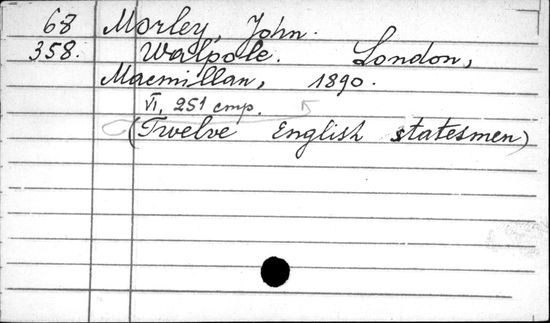 68 Morley, John.
358. Walpole. London,
Macmillan, 1890.
VI, 251 cmp.
(Twelve English statesmen)